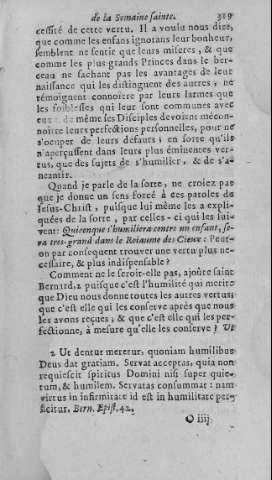 de la Semaine sainte. 319
cessité de cette vertu. Il a voulu nous dire,
que comme les enfans ignorans leur bonheur,
semblent ne sentir que leurs miseres, & que
comme les plus grands Princes dans le ber-
ceau ne sachant pas les avantages de leur
naissance qui les distinguent des autres, ne
rémoignent connoître par leurs larmes que
les foiblesses qui leur sont communes avec
eux: de même ses Disciples devoient mécon-
noître leurs perfections personnelles, pour ne
s'occuper de leurs défauts; en sorte qu'ils
n'aperçussent dans leurs plus éminentes ver-
tus, que des sujets de s'humilier, & de s'a-
neantir.
Quand je parle de la sorte, ne croiez pas
que je donne un sens forcé à ces paroles de
Jesus-Christ, puisque lui même les a expli-
quées de la sorte, par celles-ci qui les sui-
vent: Quiconque s'humiliera comme un enfant, se-
ra tres-grand dans le Roiaume des Cieux: Peut-
on par consequent trouver une vertu plus ne-
cessaire, & plus indispensable?
Comment ne le seroit-elle pas, ajoûte saint
Bernard,2 puisque c'est l'humilité qui merite
que Dieu nous donne toutes les autres vertus;
que c'est elle qui les conserve après que nous
les avons reçues; & que c'est elle qui les per-
fectionne, à mesure qu'elle les conserve? Ut
2 Ut dentur meretur, quoniam humilibus
Deus dat gratiam. Servat acceptas, quia non
requiescit spiritus Domini nisi super quie-
tum, & humilem. Servatas consummat: nam
virtus in infirmitate id est in humilitate per-
ficitur. Bern. Epist. 42,
O iiij